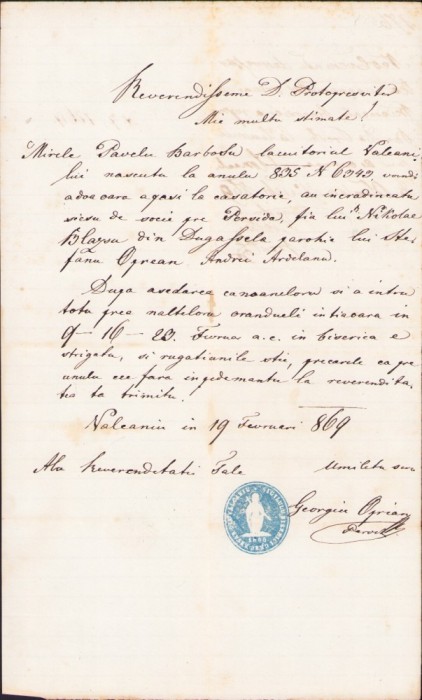 Reverendisseme D. Protopresviter
Mie multu stimate!
Mirele Pavelu Barbosu lacuitorial Valcani
lui nascutu la anulu 835 N 6343, 
adoaoara agasi la casatorie, au incradineata
viersu de vocie pre Persida, fia lui Nikolae
din Dugassela parohia lui Ste-
fanu Oprean Andrei Ardelanu.
Dupa asedarea canoaneloru si a intru
totu prea nalteloru oranduieli intiaoara in
9 - 16 - 23. Fevrua a.c. in biserica e
strigatu, si rugatiunile stie, precarele ca pre
unulu ce fara inpedemantu la reverendita-
tia ta trimitu.
Valcaniu in 19 Fevrueri 869
Ala Reverenditatii Tale
umiletu
Georgiu Oprian